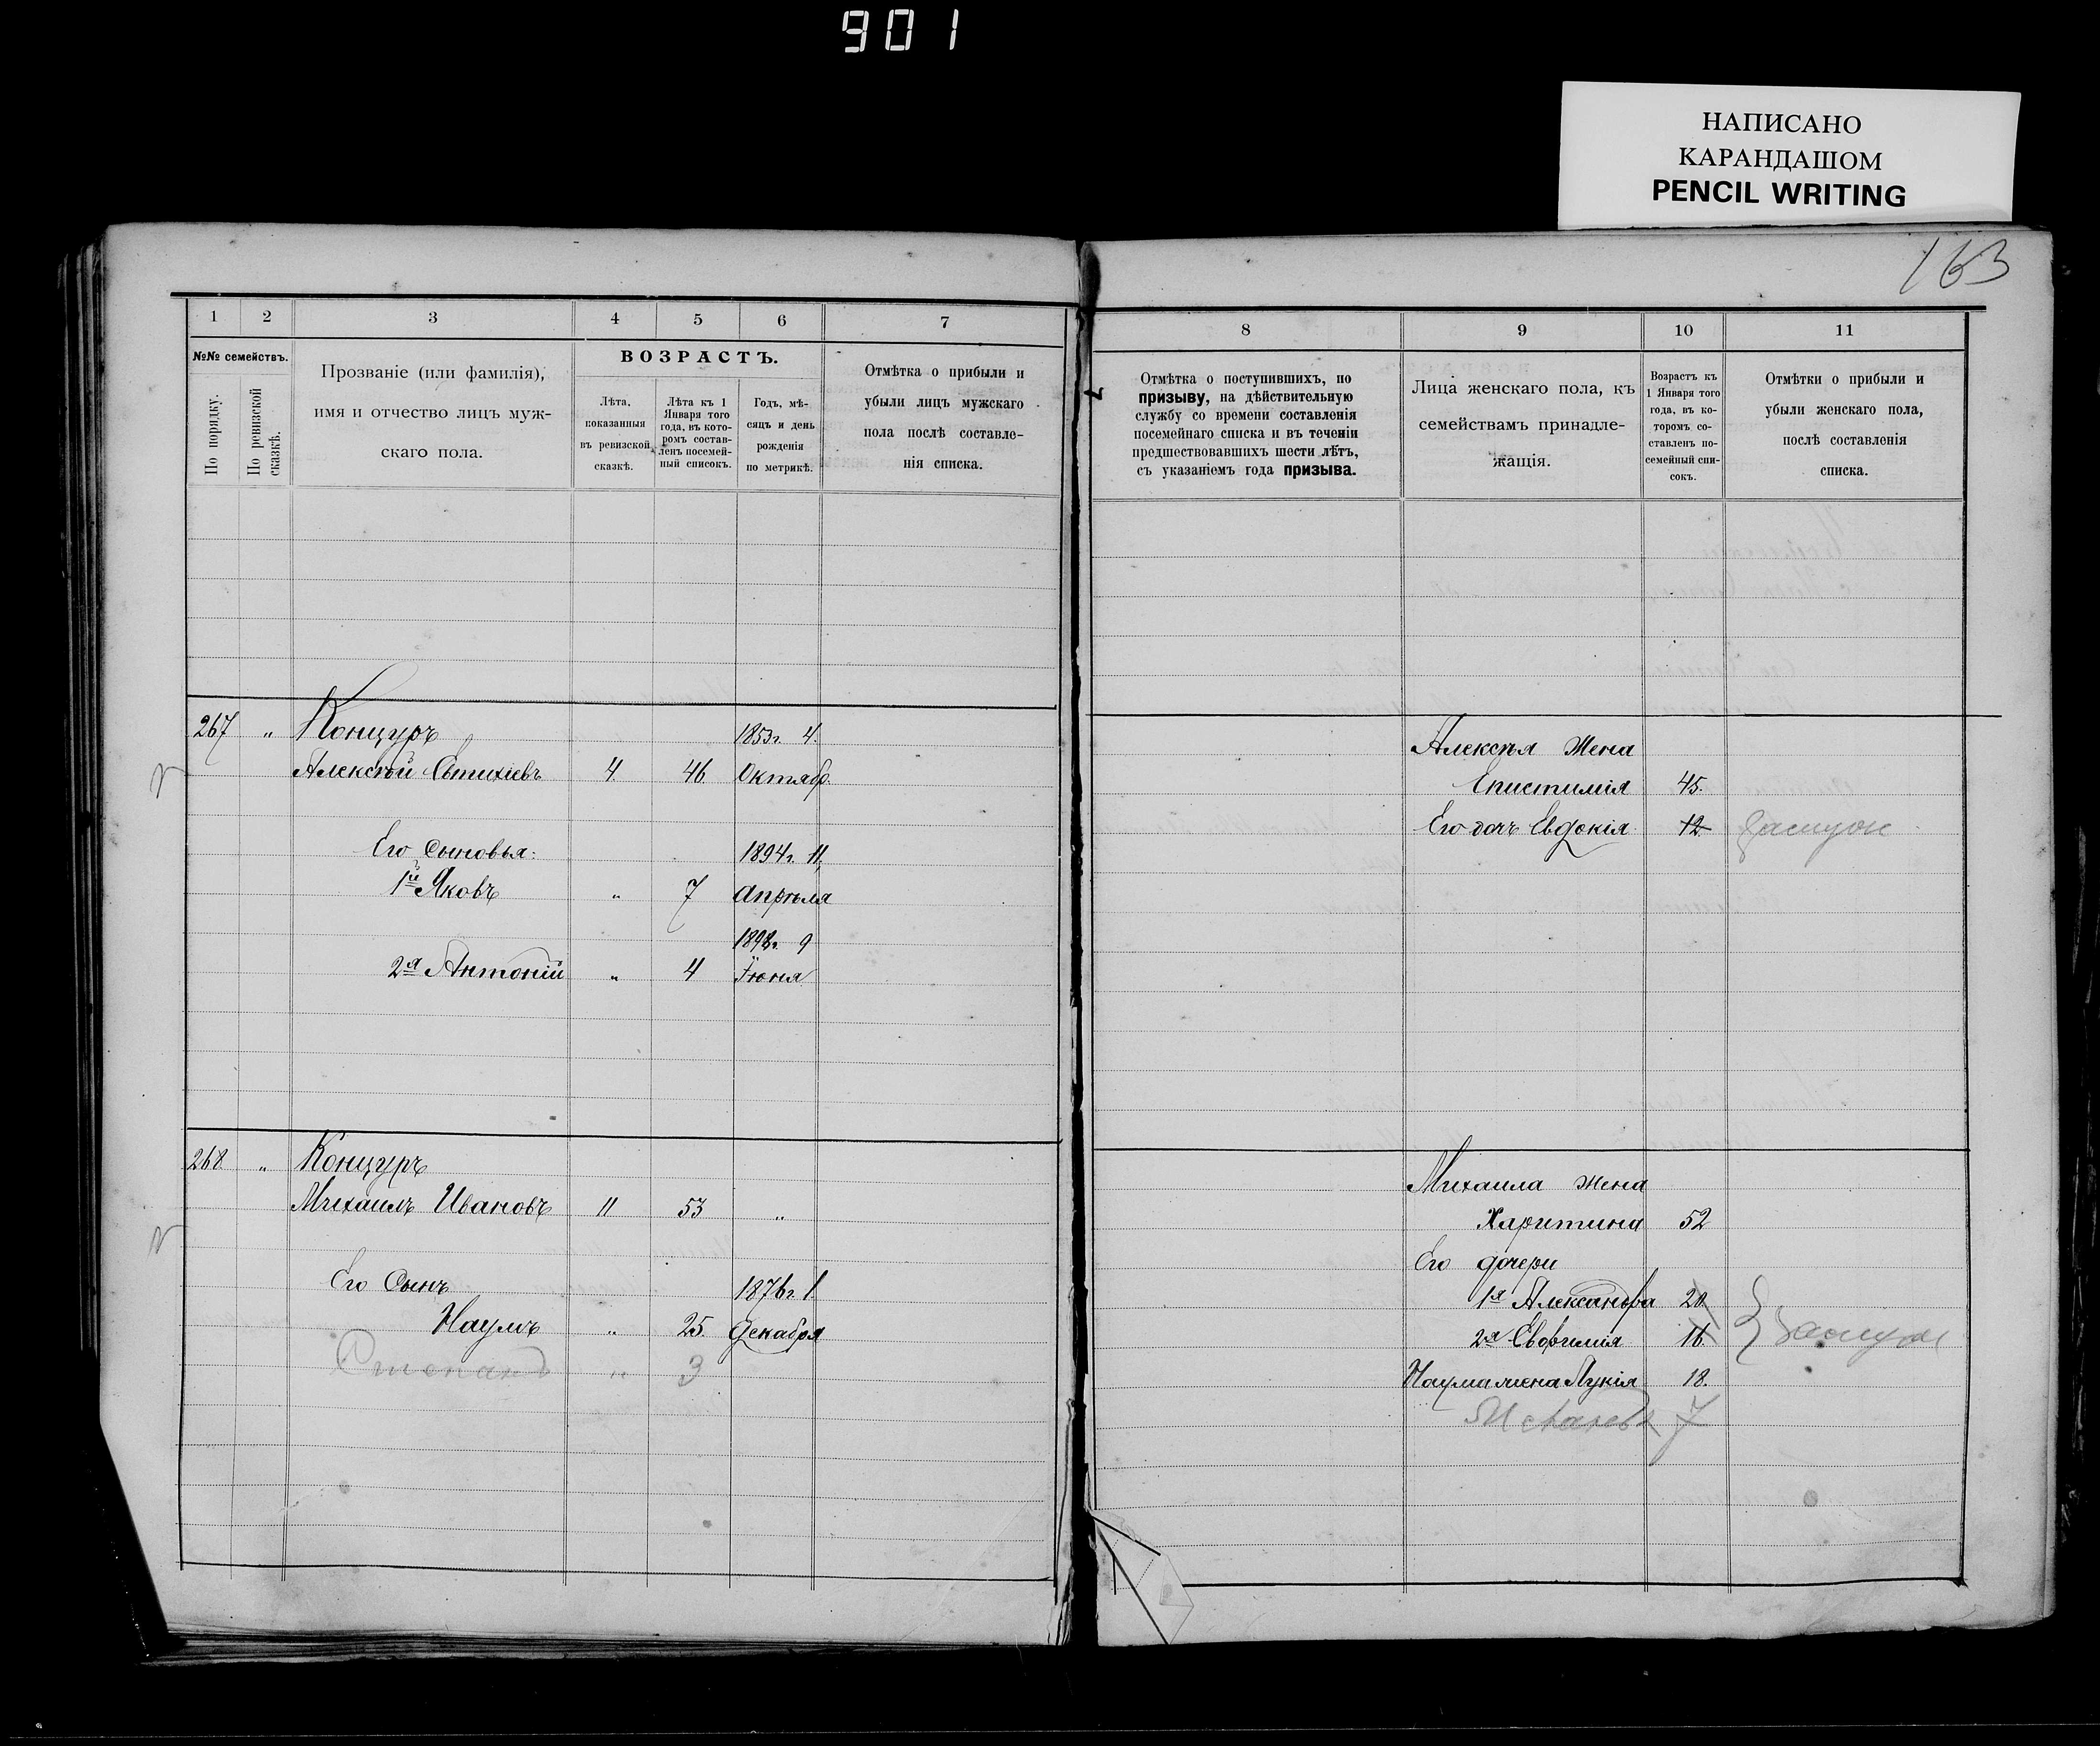 901
НАПИСАНО
КАРАНДАШОМ
PENCIL WRITING
163
1 2 3 4 5 6 7
№№ семействъ.
По порядку.
По ревизской сказкѣ.
Прозваніе (или фамилія),
имя и отчество лицъ муж-
скаго пола.
ВОЗРАСТЪ.
Лѣта,
показанныя
въ ревизской
сказкѣ.
Лѣта къ 1
Января того
года, въ кото-
ромъ состав-
ленъ посемей-
ный списокъ.
Годъ, мѣ-
сяцъ и день
рожденія
по метрикѣ.
Отмѣтка о прибыли и
убыли лицъ мужскаго
пола послѣ составле-
нія списка.
267 " Концуръ 1853г. 4.
Алексѣй Евтихіевъ 4. 46 Октябр.
Его Сыновья: 1894г. 11,
1й Яковъ " 7 Апрѣля
1898г. 9
2я Антоній " 4 Іюня
268 " Концуръ
Михаилъ Ивановъ 11 53 "
Его Сынъ 1876г. 1.
Наумъ " 25. Декабря
Степанъ " 3
8 9 10 11
Отмѣтка о поступившихъ, по
призыву, на дѣйствительную
службу со времени составленія
посемейнаго списка и въ теченіи
предшествовавшихъ шести лѣтъ,
съ указаніемъ года призыва.
Лица женскаго пола, къ
семействамъ принадле-
жащія.
Возрастъ къ
1 Января того
года, въ ко-
торомъ со-
ставленъ по-
семейный спи-
сокъ.
Отмѣтки о прибыли и
убыли женскаго пола,
послѣ составленія
списка.
Алексѣя Жена
Епистимія 45.
Его дочь Евдокія 12 Замуж
Михаила Жена
Харитина 52
Его дочери
1я Александра 20.
2я Евфимія 16. Замуж
Наума жена Лукія 18.
7